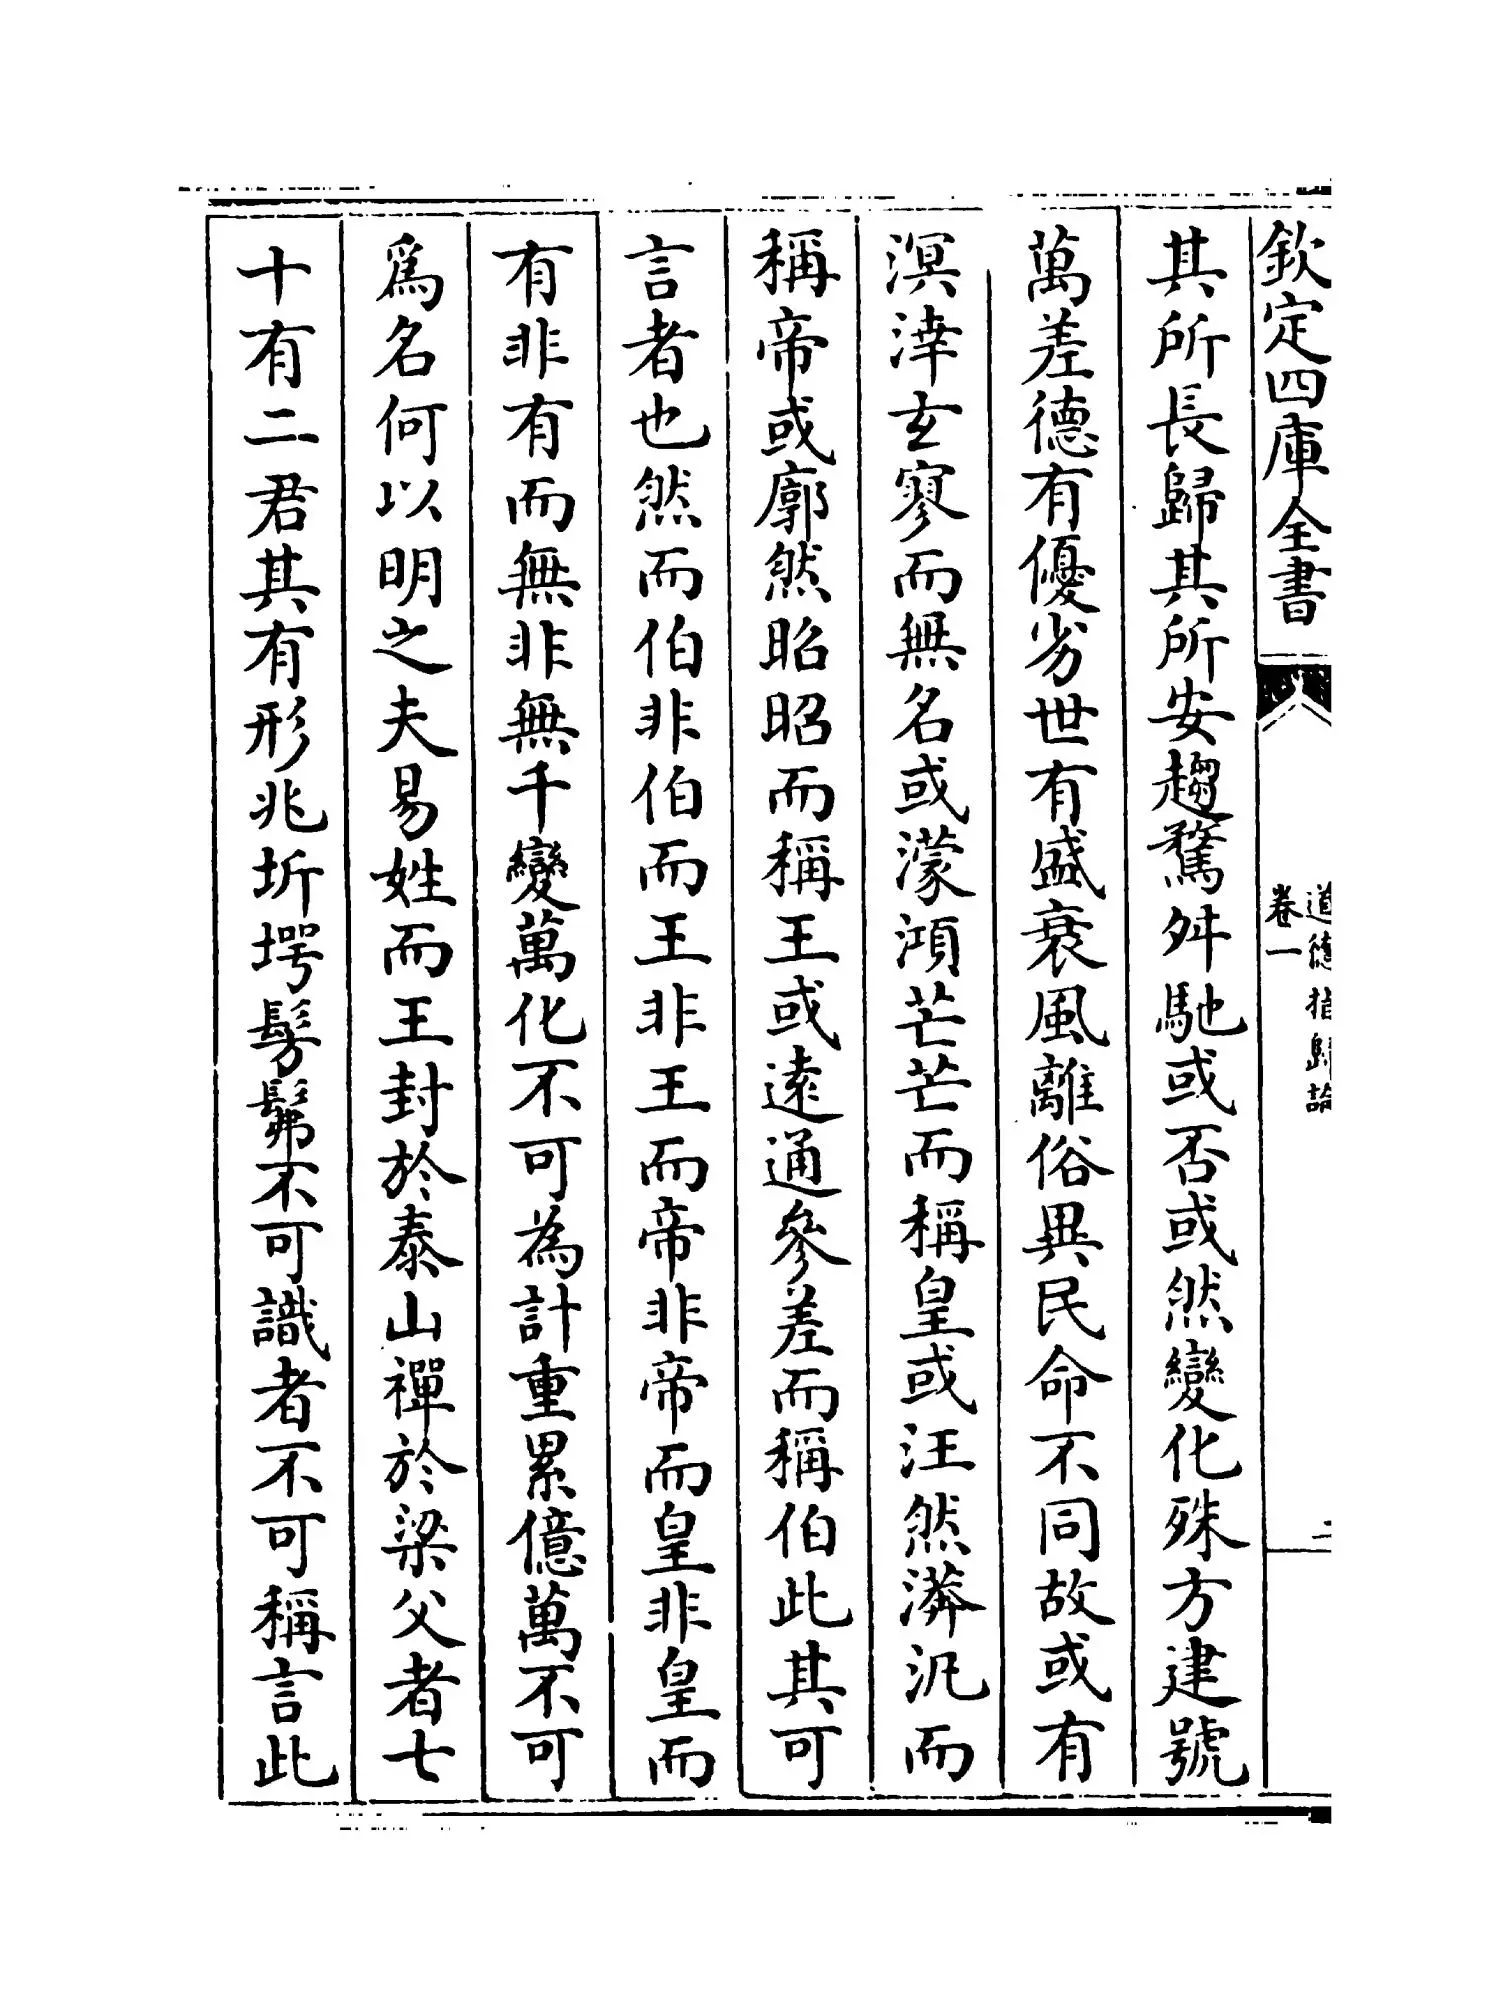 欽定四庫全書
道德指歸論
卷一
二
其所長歸其所安趨騖舛馳或否或然變化殊方建號
萬差德有優劣世有盛衰風離俗異民命不同故或有
溟涬玄寥而無名或濛澒芒芒而稱皇或汪然漭汎而
稱帝或廓然昭昭而稱王或遠通參差而稱伯此其可
言者也然而伯非伯而王非王而帝非帝而皇非皇而
有非有而無非無千變萬化不可為計重累億萬不可
爲名何以明之夫易姓而王封於泰山禪於梁父者七
十有二君其有形兆圻堮髣髴不可識者不可稱言此